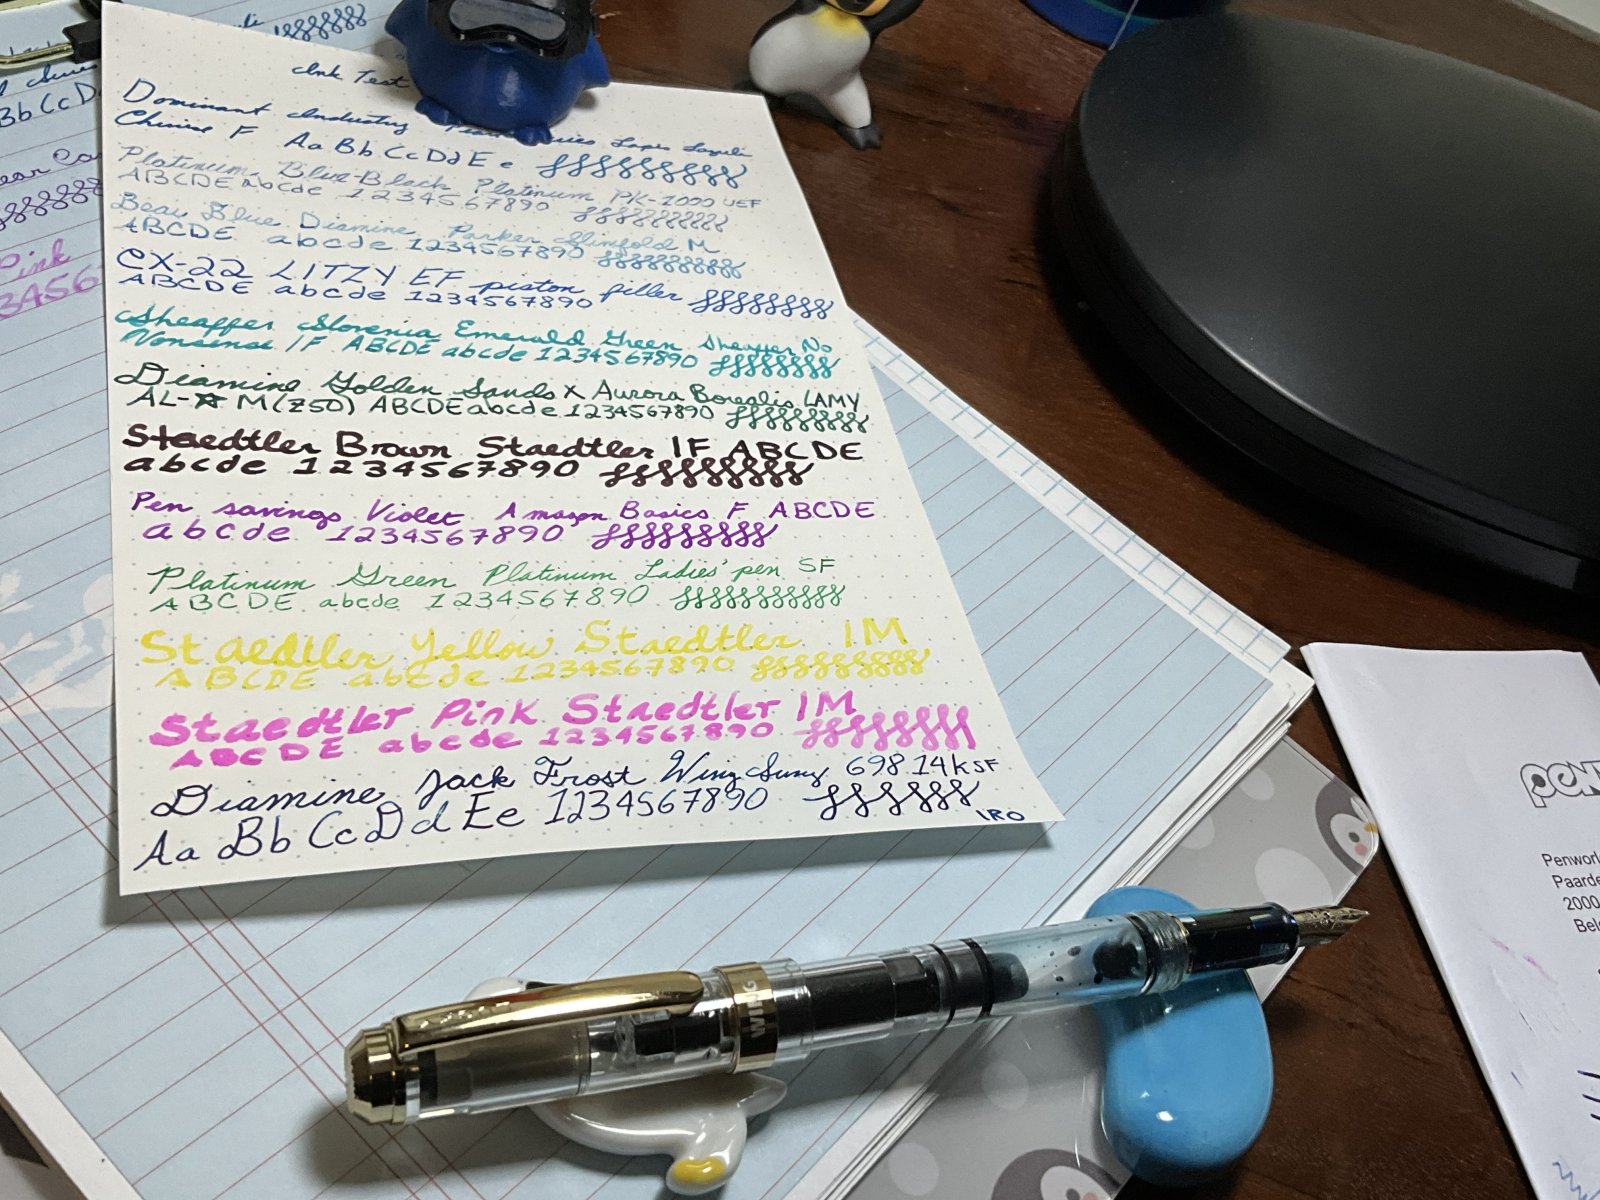 Ink Test
Dominant Industry Lapis Lazuli
Chinese F Aa Bb Cc Dd E e
Platinum Blue-Black Platinum PK-1000 UEF
ABCDE abcde 1234567890
Beau Blue Diamine Parker Slimfold M
ABCDE abcde 1234567890
CX-22 LITZY EF piston filler
ABCDE abcde 1234567890
Sheaffer Slovenia Emerald Green Sheaffer No
Nonsense IF ABCDE abcde 1234567890
Diamine Golden Sands X Aurora Borealis LAMY
AL-☆ M(Z50) ABCDE abcde 1234567890
Staedtler Brown Staedtler IF ABCDE
abcde 1234567890
Pen savings Violet Amazon Basics F ABCDE
abcde 1234567890
Platinum Green Platinum Ladies' pen SF
ABCDE abcde 1234567890
Staedtler Yellow Staedtler IM
ABCDE abcde 1234567890
Staedtler Pink Staedtler IM
ABCDE abcde 1234567890
Diamine Jack Frost Wing Sung 698 14k SF
Aa Bb Cc Dd Ee 1234567890
IRO
Bb Cc D
Pink
3456
WING
Penworl
Paarde
2000
Bel